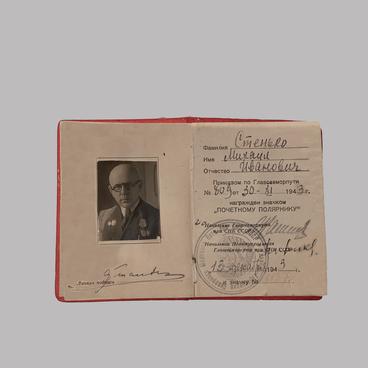 Личная подпись
Фамилия Стенько
Имя Михаил
Отчество Иванович
Приказом по Главсевморпути
№ 809 от 30-XI 1943 г.
награжден значком
„ПОЧЕТНОМУ ПОЛЯРНИКУ“
Начальник Главсевморпути
при СНК СССР
Начальник Политуправления
Главсевморпути
13 1943 г.
К значку №